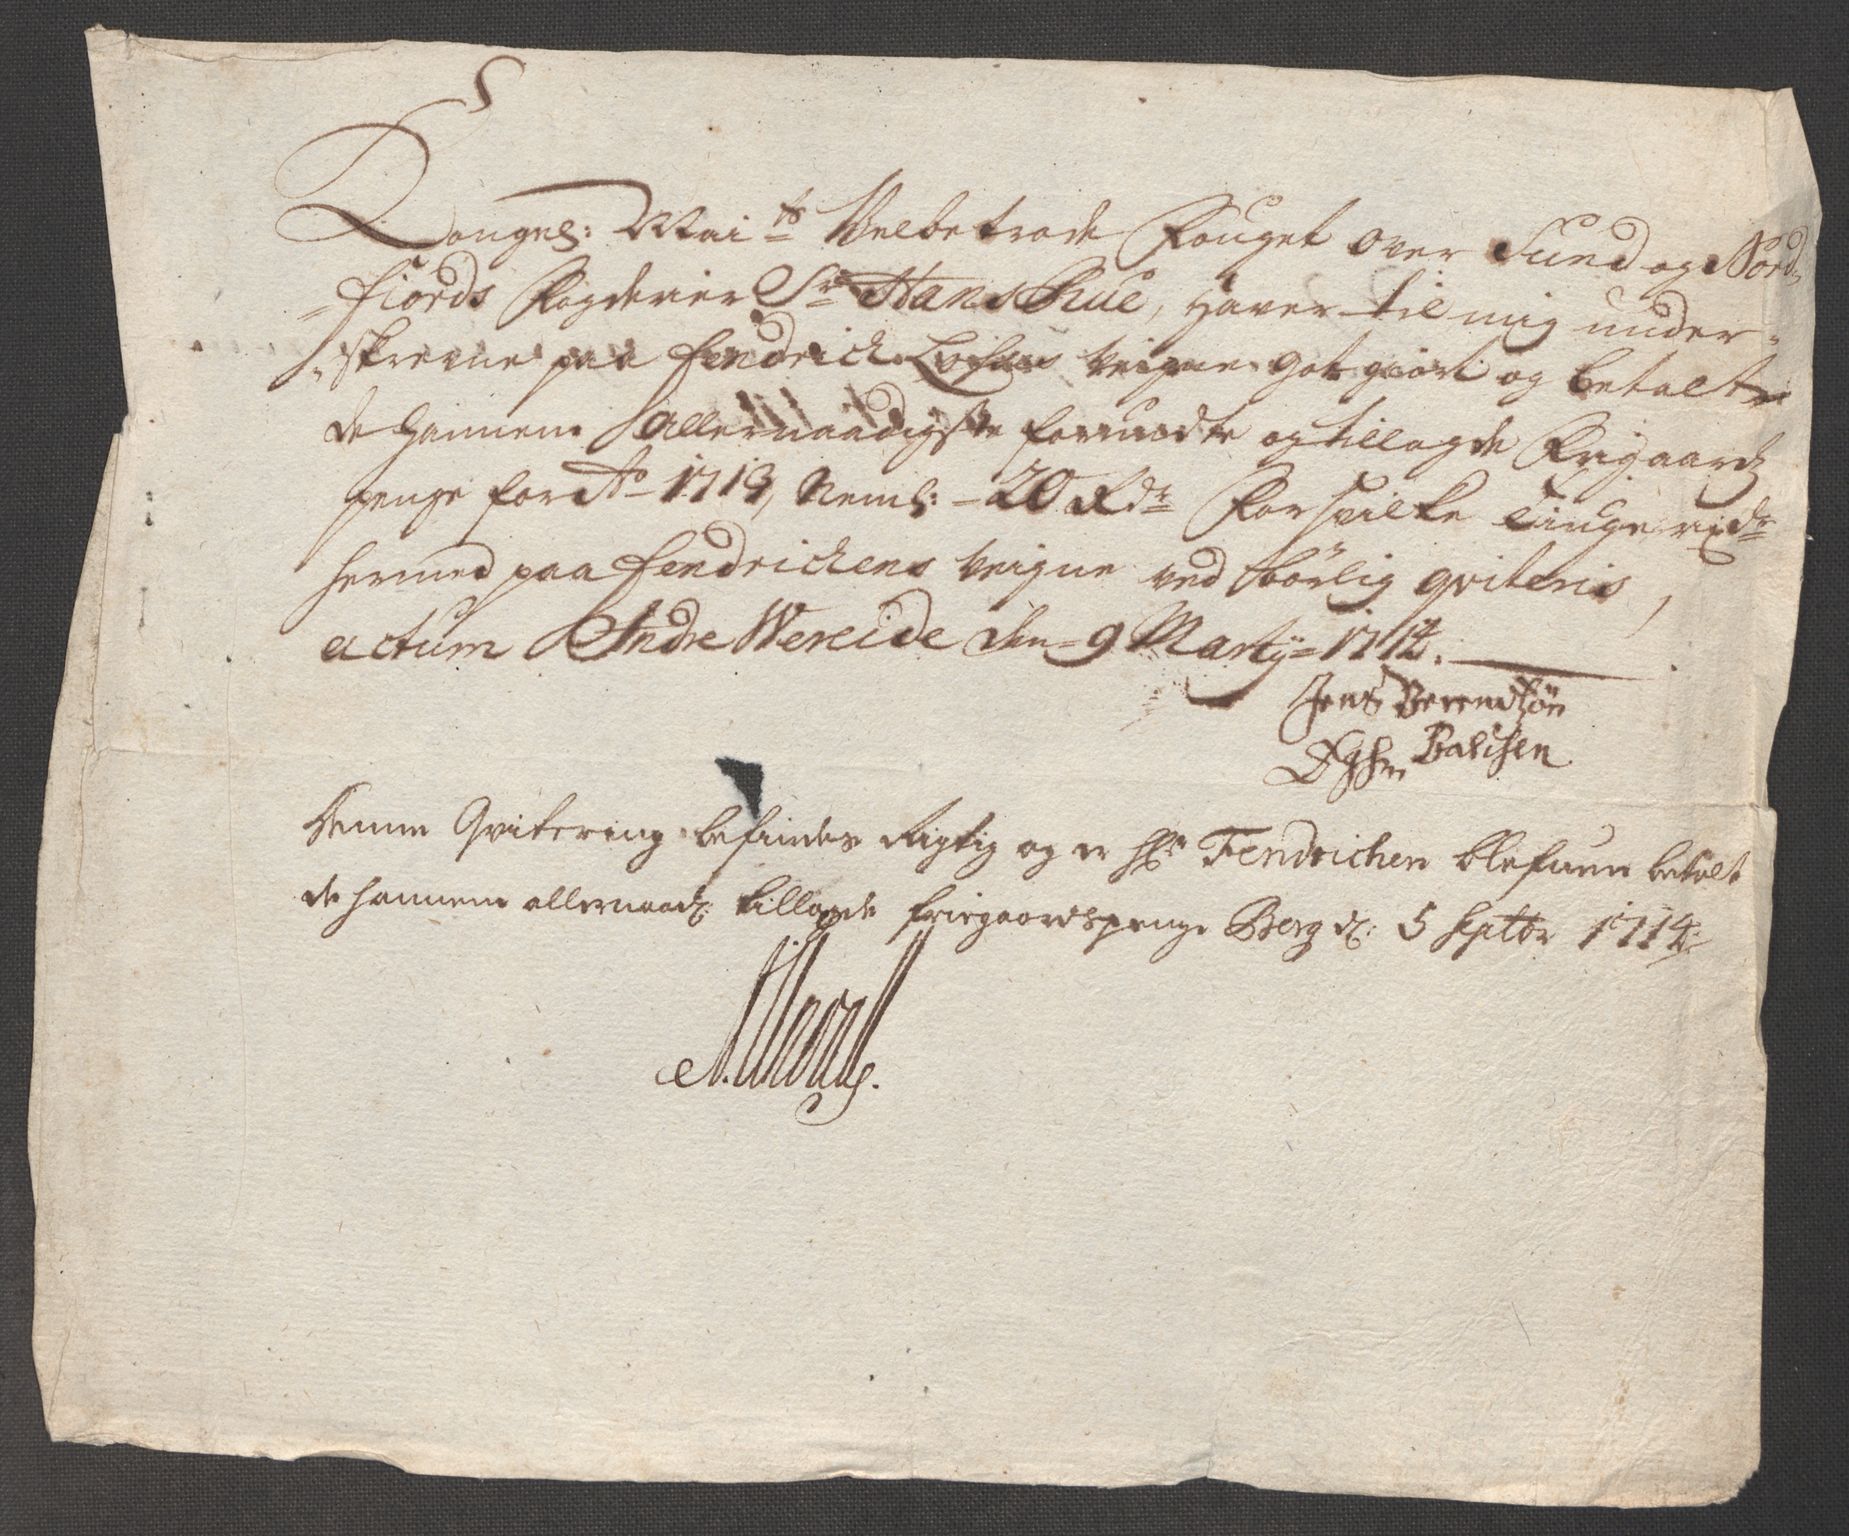 Kongel: Mai^ts Velbetrode Fouget over Sund og Nord-
=fiords Fogderier S^r Hans Rue, haver til mig under-
-skrevne paa Fendrich veigne got giort og betalt
de hannem allernaadigste forundte og tillagde Frigaards
penge for A^o 1713, Neml: - 20 Rd^r For hvilke tiuge rixd^r
hermed paa Fendrichens veigne ved börlig qviteris,
actum Indre Wereide den 9 Marty 1714.
Jens Berendsön
Balchen
Denne Qvitering befindes Rigtig og er H^r Fendrichen blefuen betalt
de hannem allernaad: tillagde friegaardspenge Berg d: 5 Septbr 1714